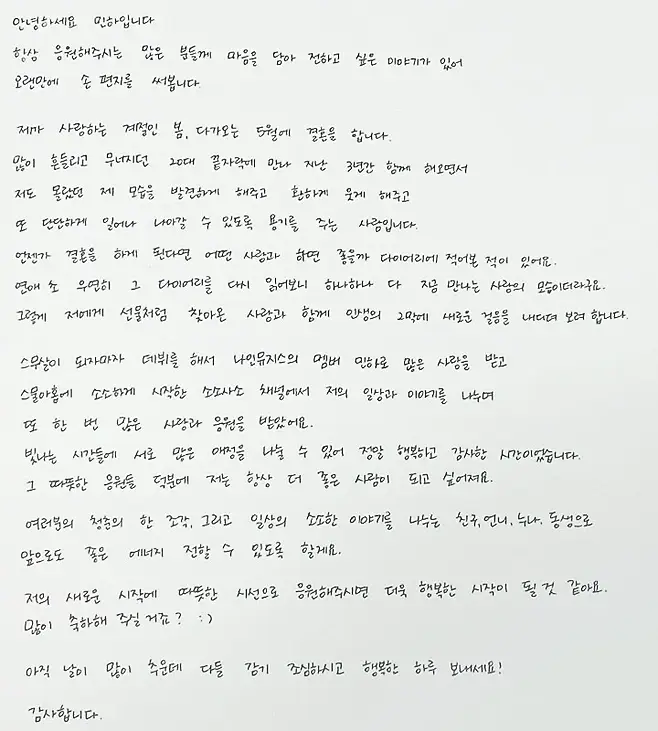 안녕하세요 민하입니다
항상 응원해주시는 많은 분들께 마음을 담아 전하고 싶은 이야기가 있어
오랜만에 손 편지를 써봅니다.
제가 사랑하는 계절인 봄, 다가오는 5월에 결혼을 합니다.
많이 흔들리고 무너지던 20대 끝자락에 만나 지난 3년간 함께 해오면서
저도 몰랐던 제 모습을 발견하게 해주고 환하게 웃게 해주고
또 단단하게 일어나 나아갈 수 있도록 용기를 주는 사람입니다.
언젠가 결혼을 하게 된다면 어떤 사람과 하면 좋을까 다이어리에 적어본 적이 있어요.
연애 초 우연히 그 다이어리를 다시 읽어보니 하나하나 다 지금 만나는 사람의 모습이더라구요.
그렇게 저에게 선물처럼 찾아온 사람과 함께 인생의 2막에 새로운 걸음을 내디뎌 보려 합니다.
스무살이 되자마자 데뷔를 해서 나인뮤지스의 멤버 민하로 많은 사랑을 받고
스물아홉에 소소하게 시작한 소소사소 채널에서 저의 일상과 이야기를 나누며
또 한 번 많은 사랑과 응원을 받았어요.
빛나는 시간들에 서로 많은 애정을 나눌 수 있어 정말 행복하고 감사한 시간이었습니다.
그 따뜻한 응원들 덕분에 저는 항상 더 좋은 사람이 되고 싶어져요.
여러분의 청춘의 한 조각, 그리고 일상의 소소한 이야기를 나누는 친구, 언니, 누나, 동생으로
앞으로도 좋은 에너지 전할 수 있도록 할게요.
저의 새로운 시작에 따뜻한 시선으로 응원해주시면 더욱 행복한 시작이 될 것 같아요.
많이 축하해 주실 거죠? :)
아직 날이 많이 추운데 다들 감기 조심하시고 행복한 하루 보내세요!
감사합니다.